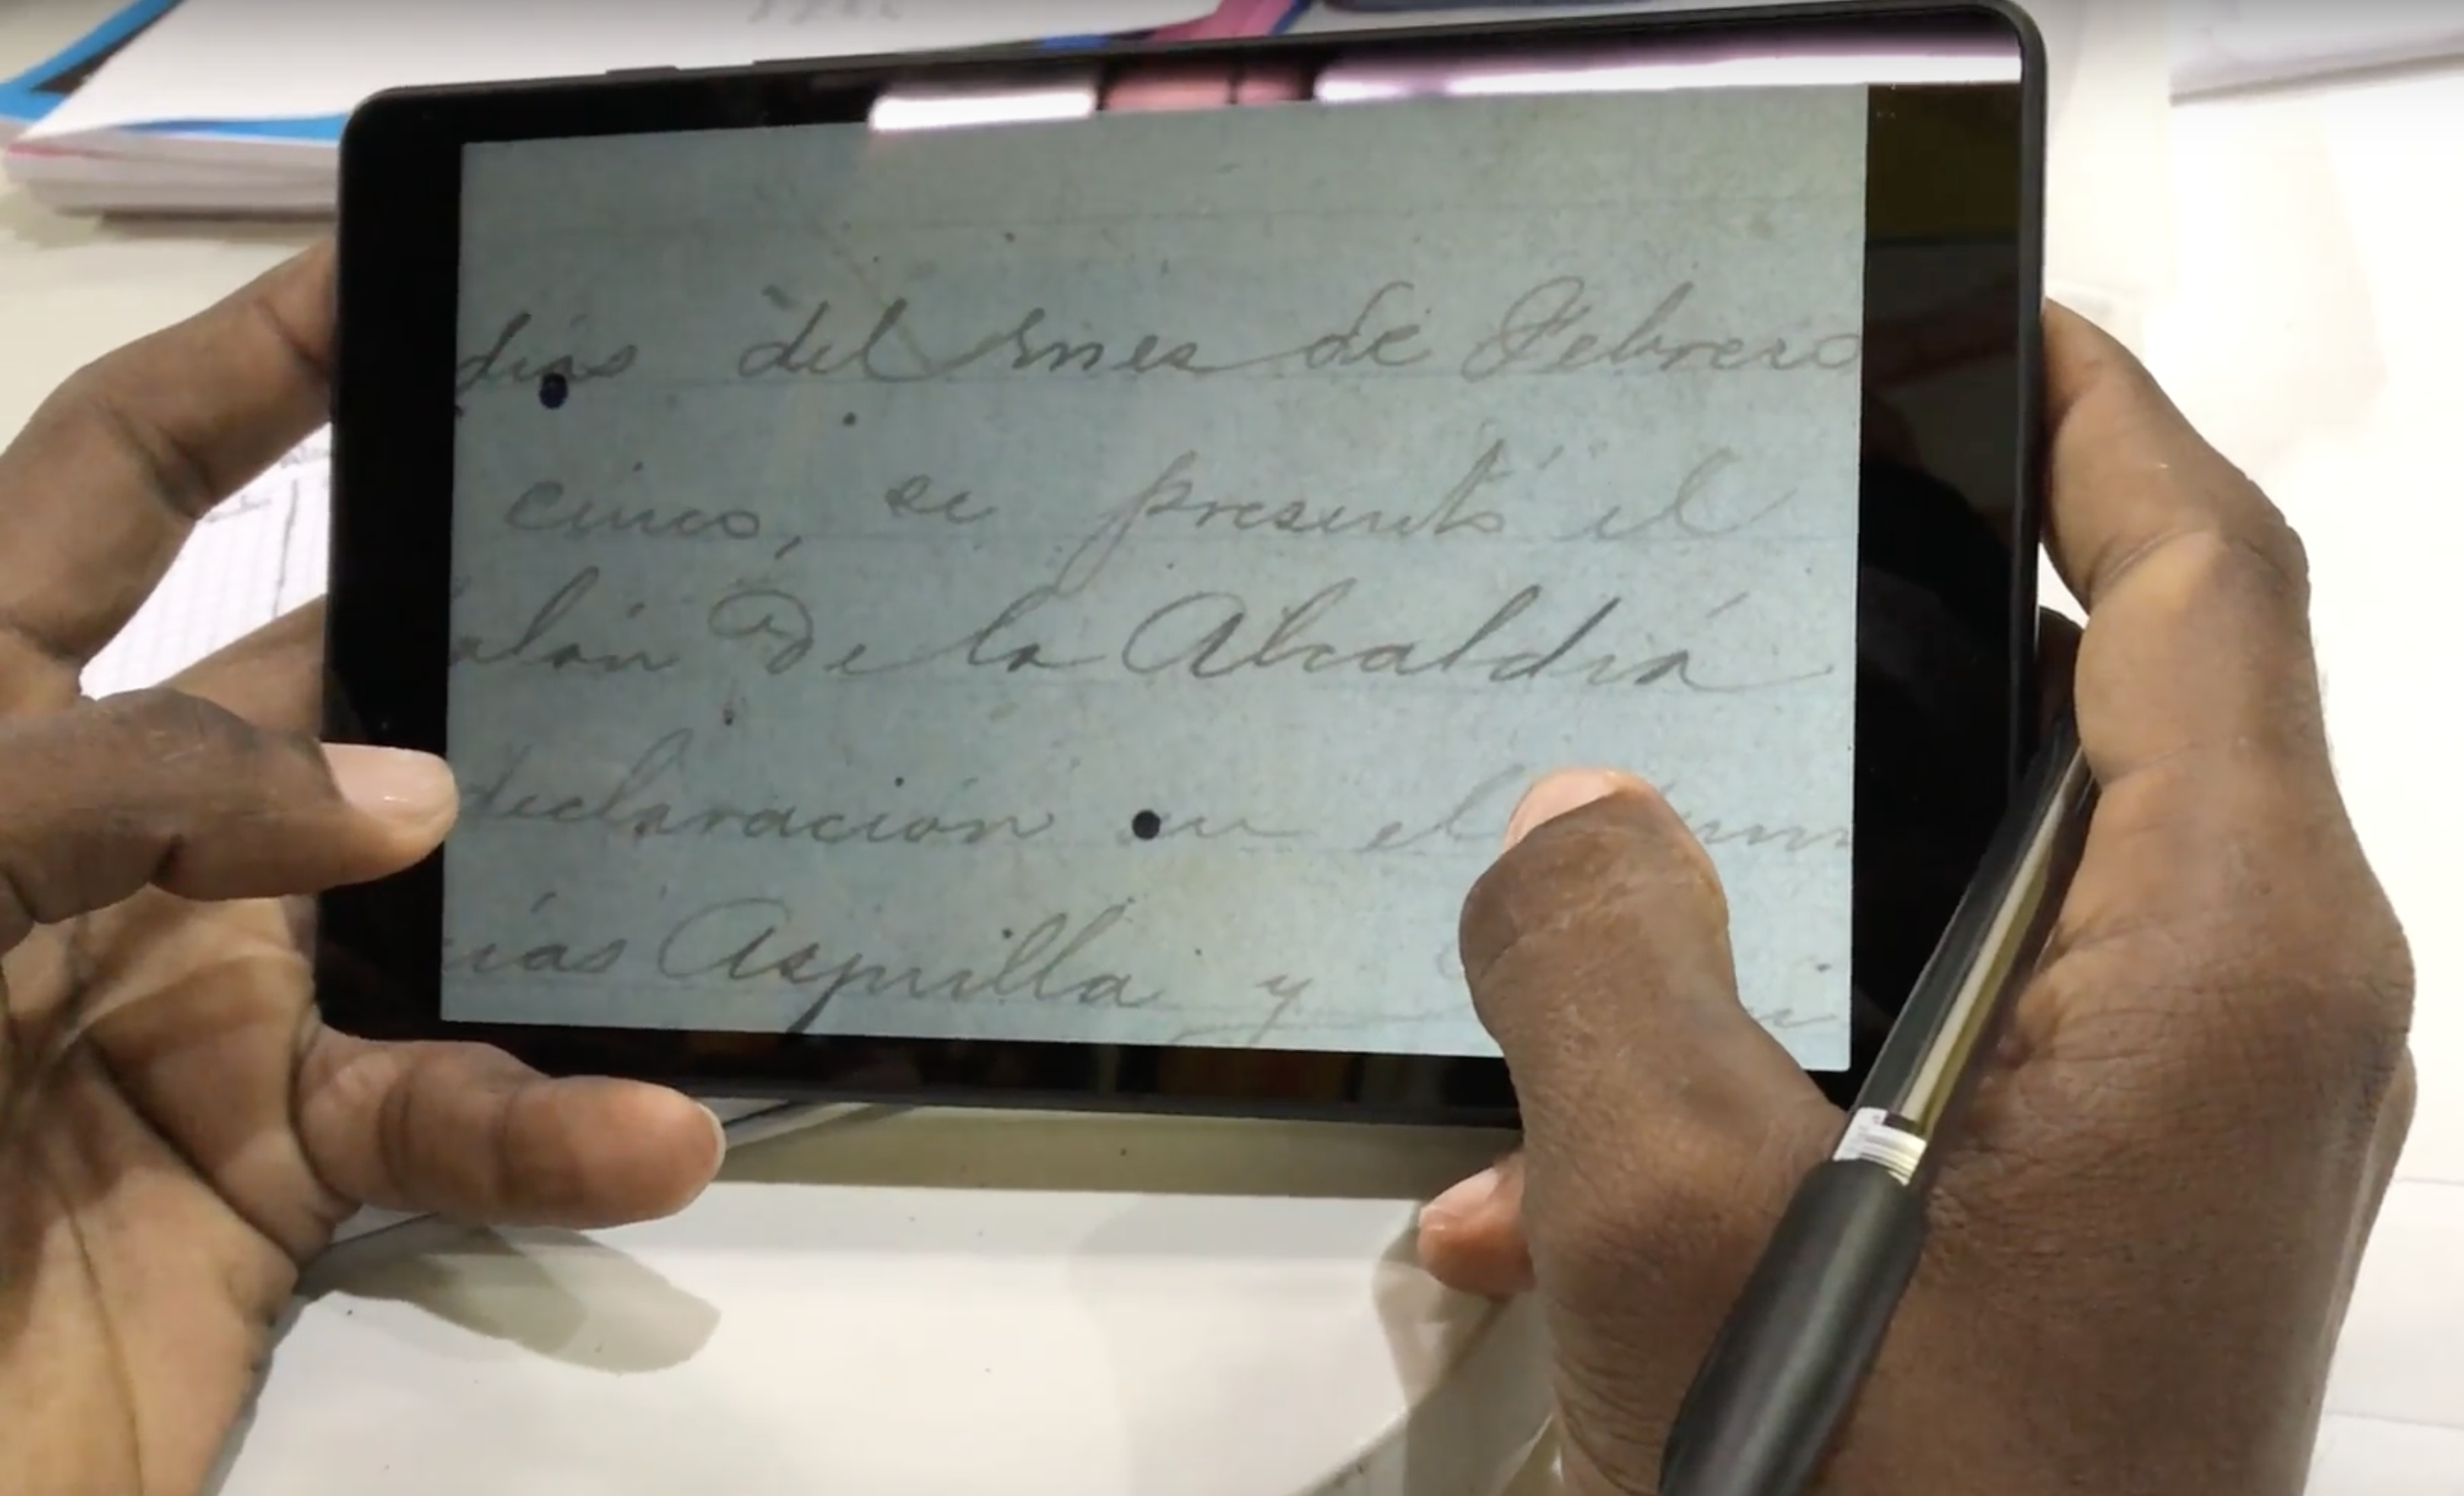 días del mes de Febrero
cinco, se presentó el
alón de la Alcaldiá
declaración en el
ías Asprilla y